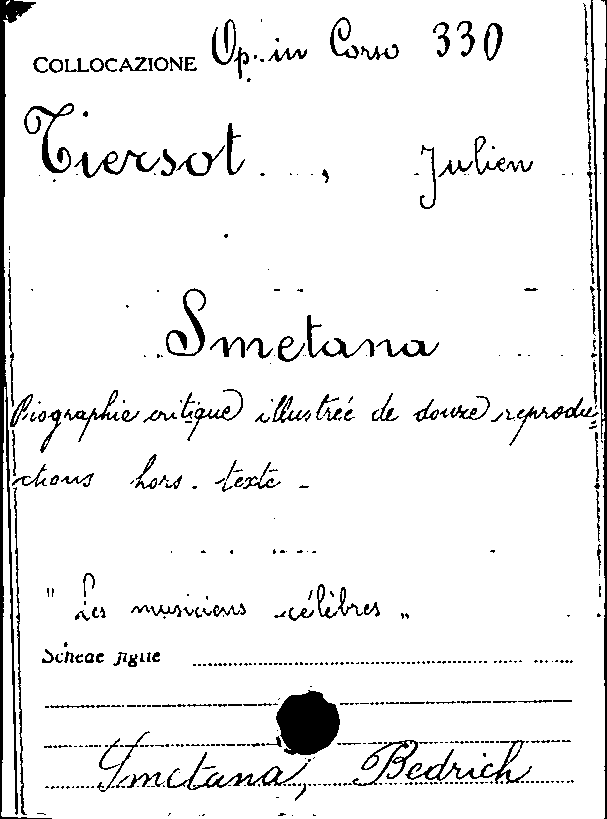 COLLOCAZIONE Op. in Corso 330
Tiersot, Julien
Smetana
Biographie critique illustrée de douze reprodu=
ctions hors-texte -
"Les musiciens célèbres„
Schede figlie
Smetana, Bedrich